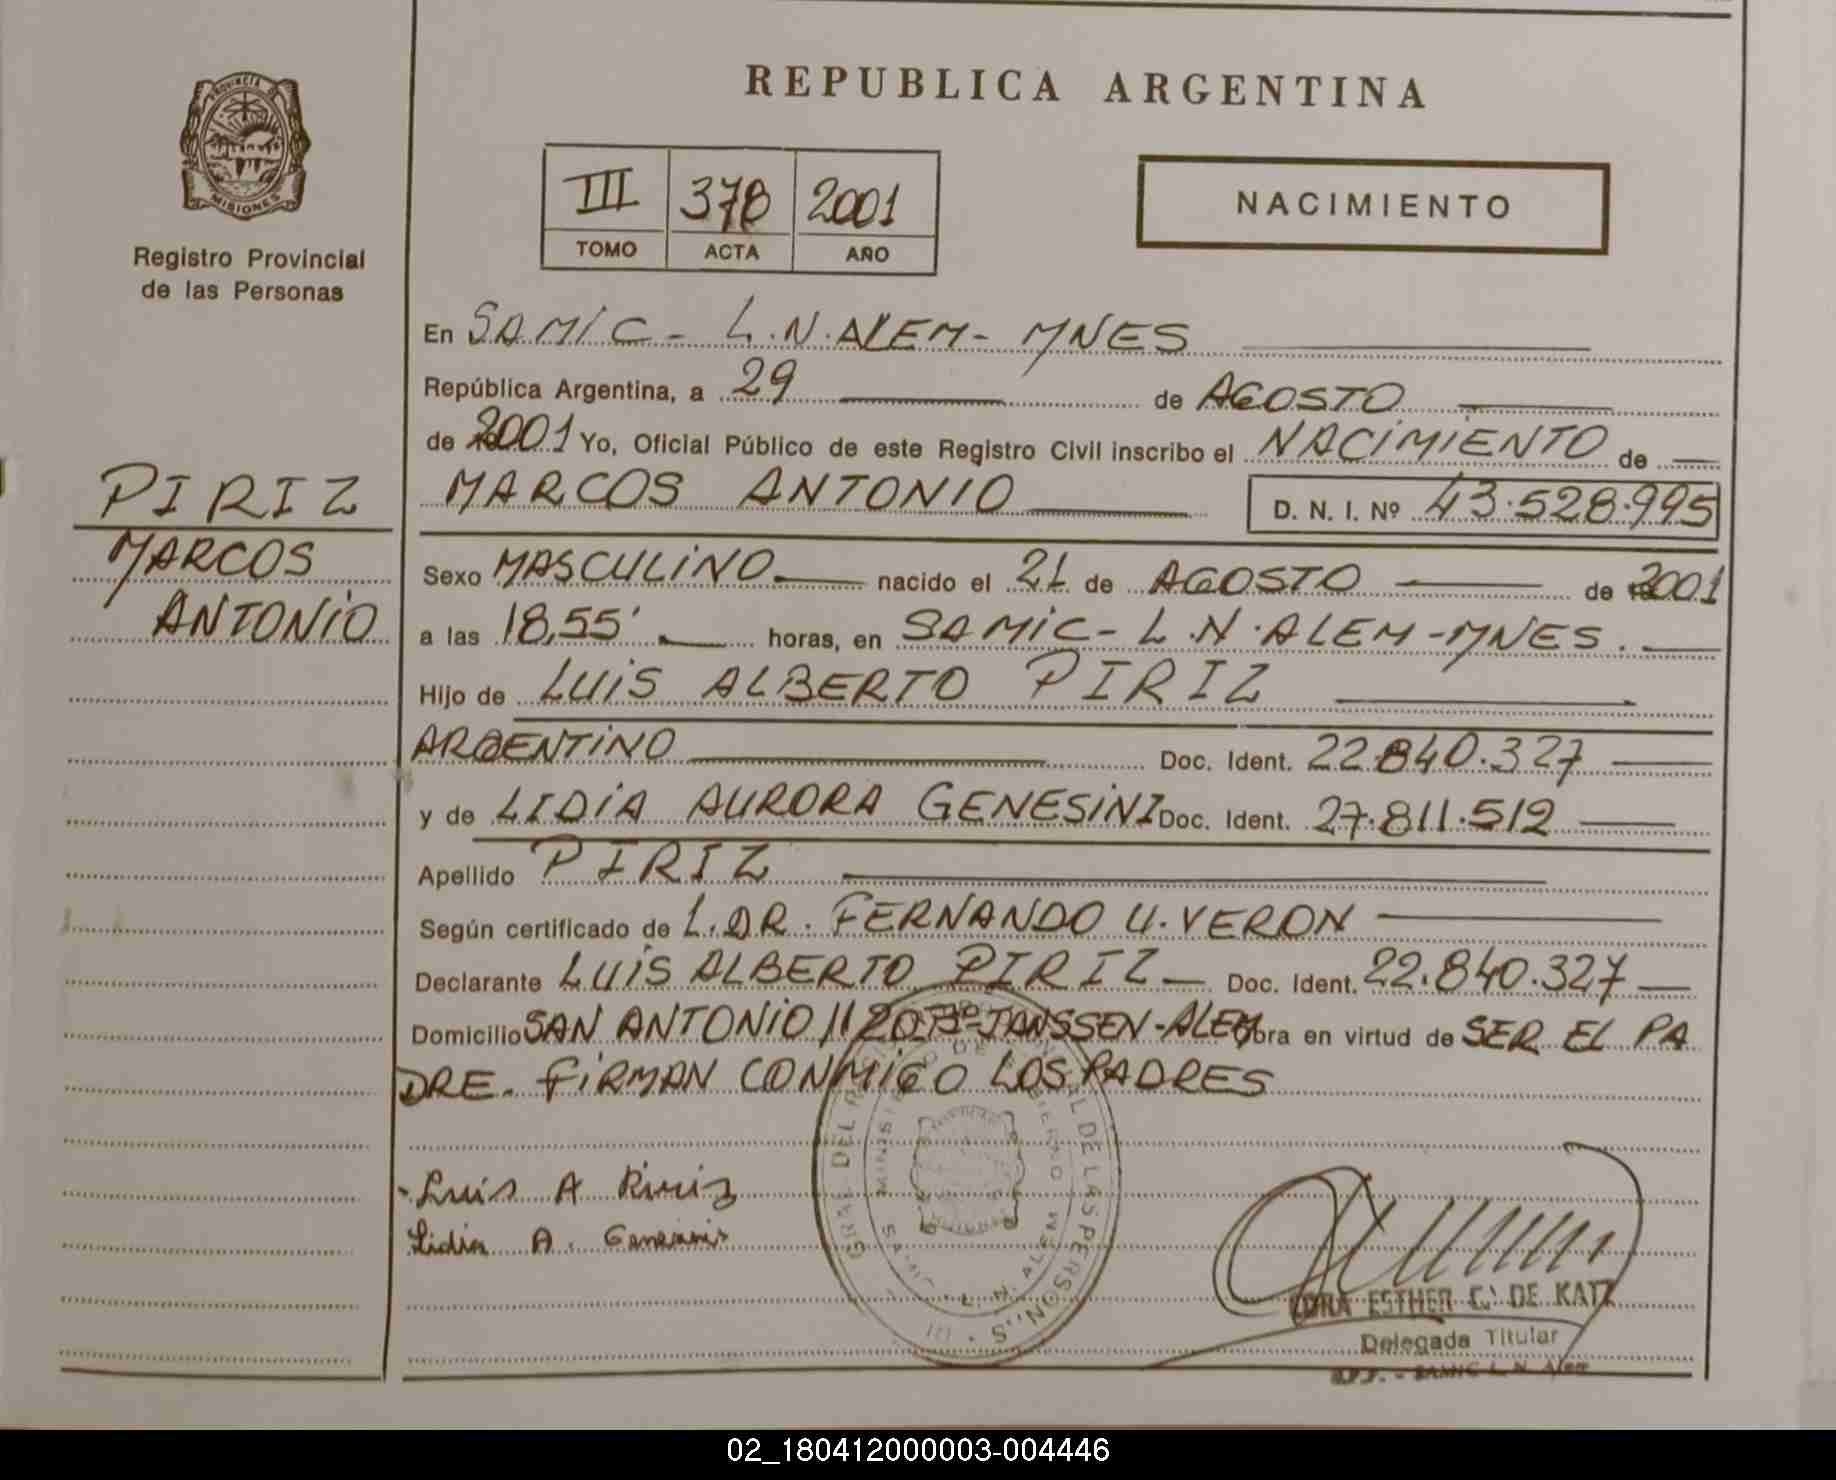 PROVINCIA DE
MISIONES
Registro Provincial
de las Personas
PIRIZ
MARCOS
ANTONIO
REPUBLICA ARGENTINA
III 378 2001
TOMO ACTA AÑO
NACIMIENTO
En SAMIC - L.N. ALEM - MNES
República Argentina, a 29 de AGOSTO
de 2001 Yo, Oficial Público de este Registro Civil inscribo el NACIMIENTO de
MARCOS ANTONIO D. N. I. Nº 43.528.995
Sexo MASCULINO nacido el 21 de AGOSTO de 2001
a las 18,55' horas, en SAMIC - L.N. ALEM - MNES.
Hijo de LUIS ALBERTO PIRIZ
ARGENTINO Doc. Ident. 22.840.327
y de LIDIA AURORA GENESINI Doc. Ident. 27.811.512
Apellido PIRIZ
Según certificado de L. DR. FERNANDO U. VERON
Declarante LUIS ALBERTO PIRIZ Doc. Ident. 22.840.327
Domicilio SAN ANTONIO JANSSEN - ALEM Obra en virtud de SER EL PA
DRE. FIRMAN CONMIGO LOS PADRES
Luis A Piriz
Lidia A.
DE LAS PERSONAS
SAMIC L. N. ALEM
ESTHER C. DE KATZ
Delegada Titular
SAMIC L. N. Alem
02_180412000003-004446